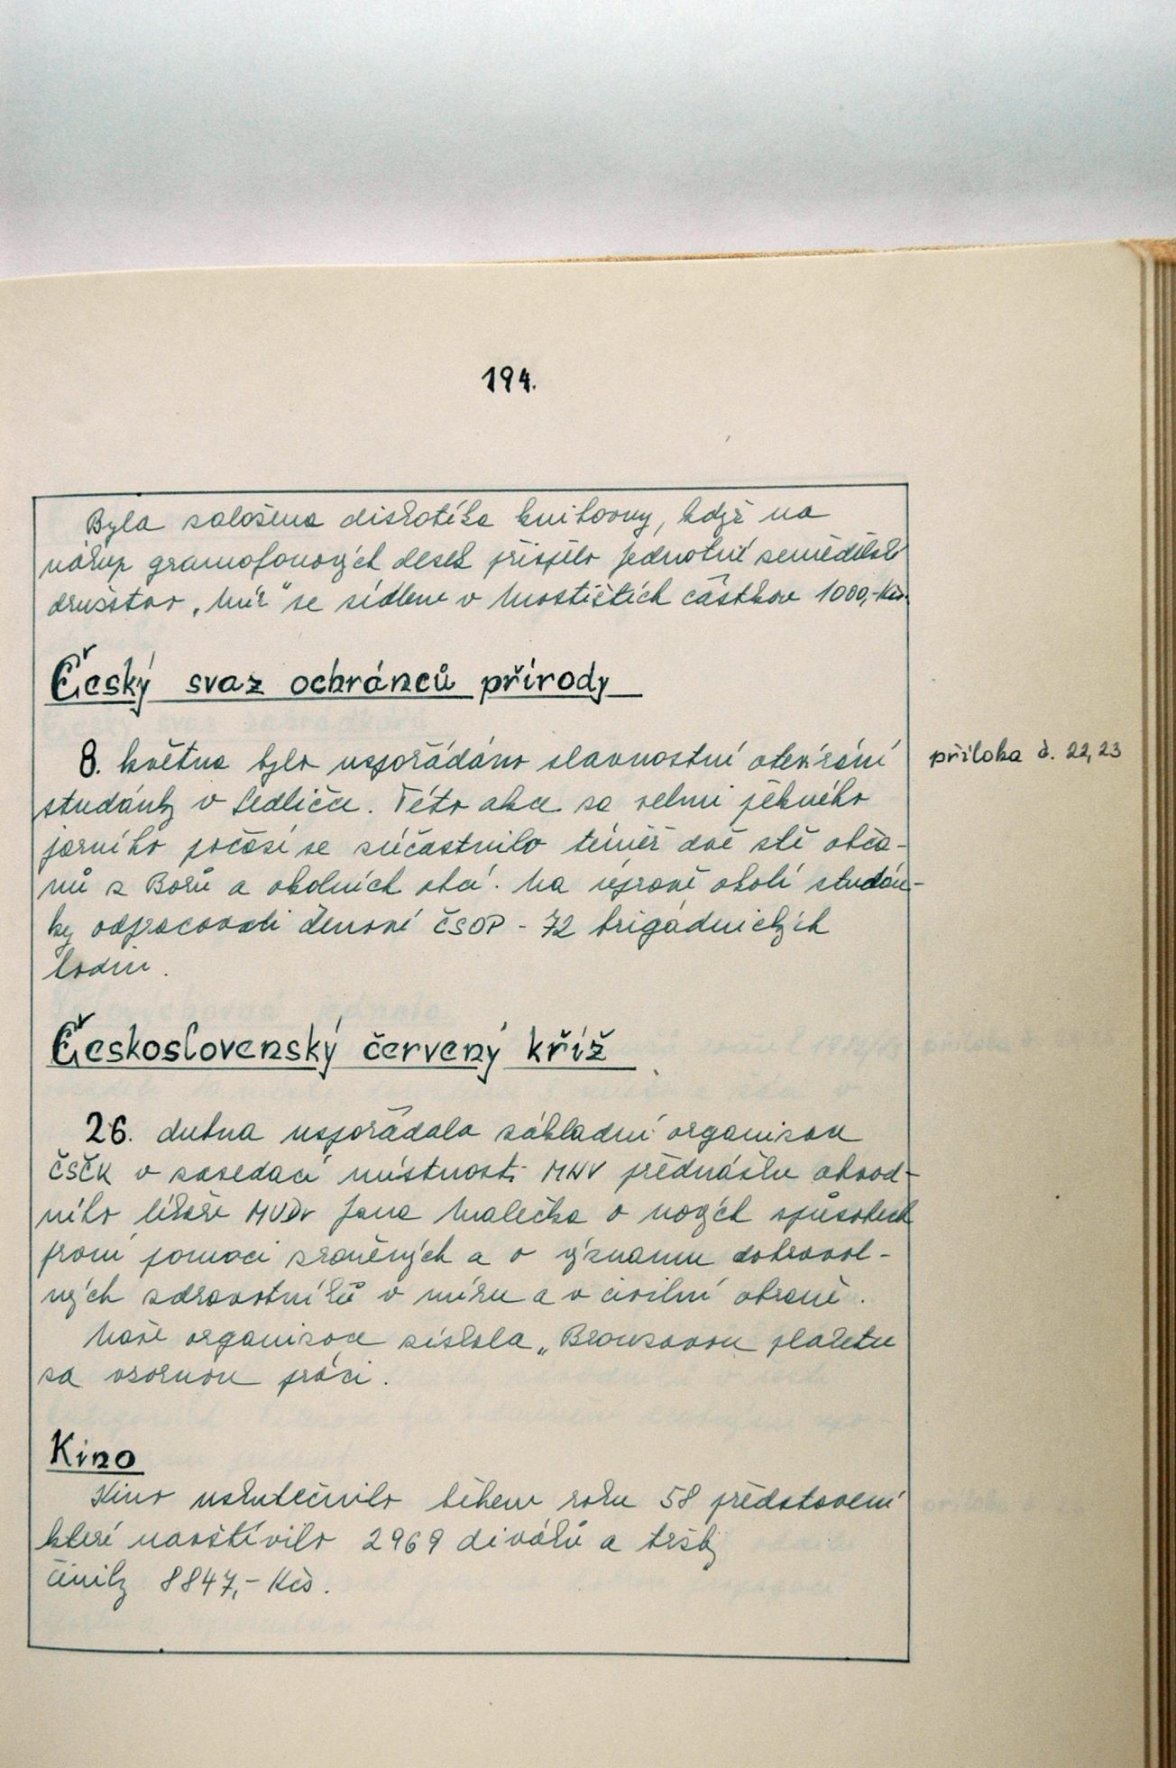 194.
Byla založena diskotéka knihovny, když na
nákup gramofonových desek přispělo Jednotné zemědělské
družstvo „Mír" se sídlem v Mostištích částkou 1000,-Kčs.
Český svaz ochránců přírody
8. května bylo uspořádáno slavnostní otevírání
příloha č. 22, 23
studánky v Sedličce. Této akce za velmi pěkného
jarního počasí se zúčastnilo téměř dvě stě obča-
nů z Borů a okolních obcí. Na úpravě okolí studán-
ky odpracovali členové ČSOP - 72 brigádnických
hodin.
Československý červený kříž
26. dubna uspořádala základní organizace
ČSČK v zasedací místnosti MNV přednášku obvod-
ního lékaře MUDr Jana Malečka o nových způsobech
první pomoci zraněných a o významu dobrovol-
ných zdravotníků v míru a v civilní obraně.
Naše organizace získala „Bronzovou plaketu
za vzornou práci.
Kino
Kino uskutečnilo během roku 58 představení
které navštívilo 2969 diváků a tržby
činily 8847,- Kčs.